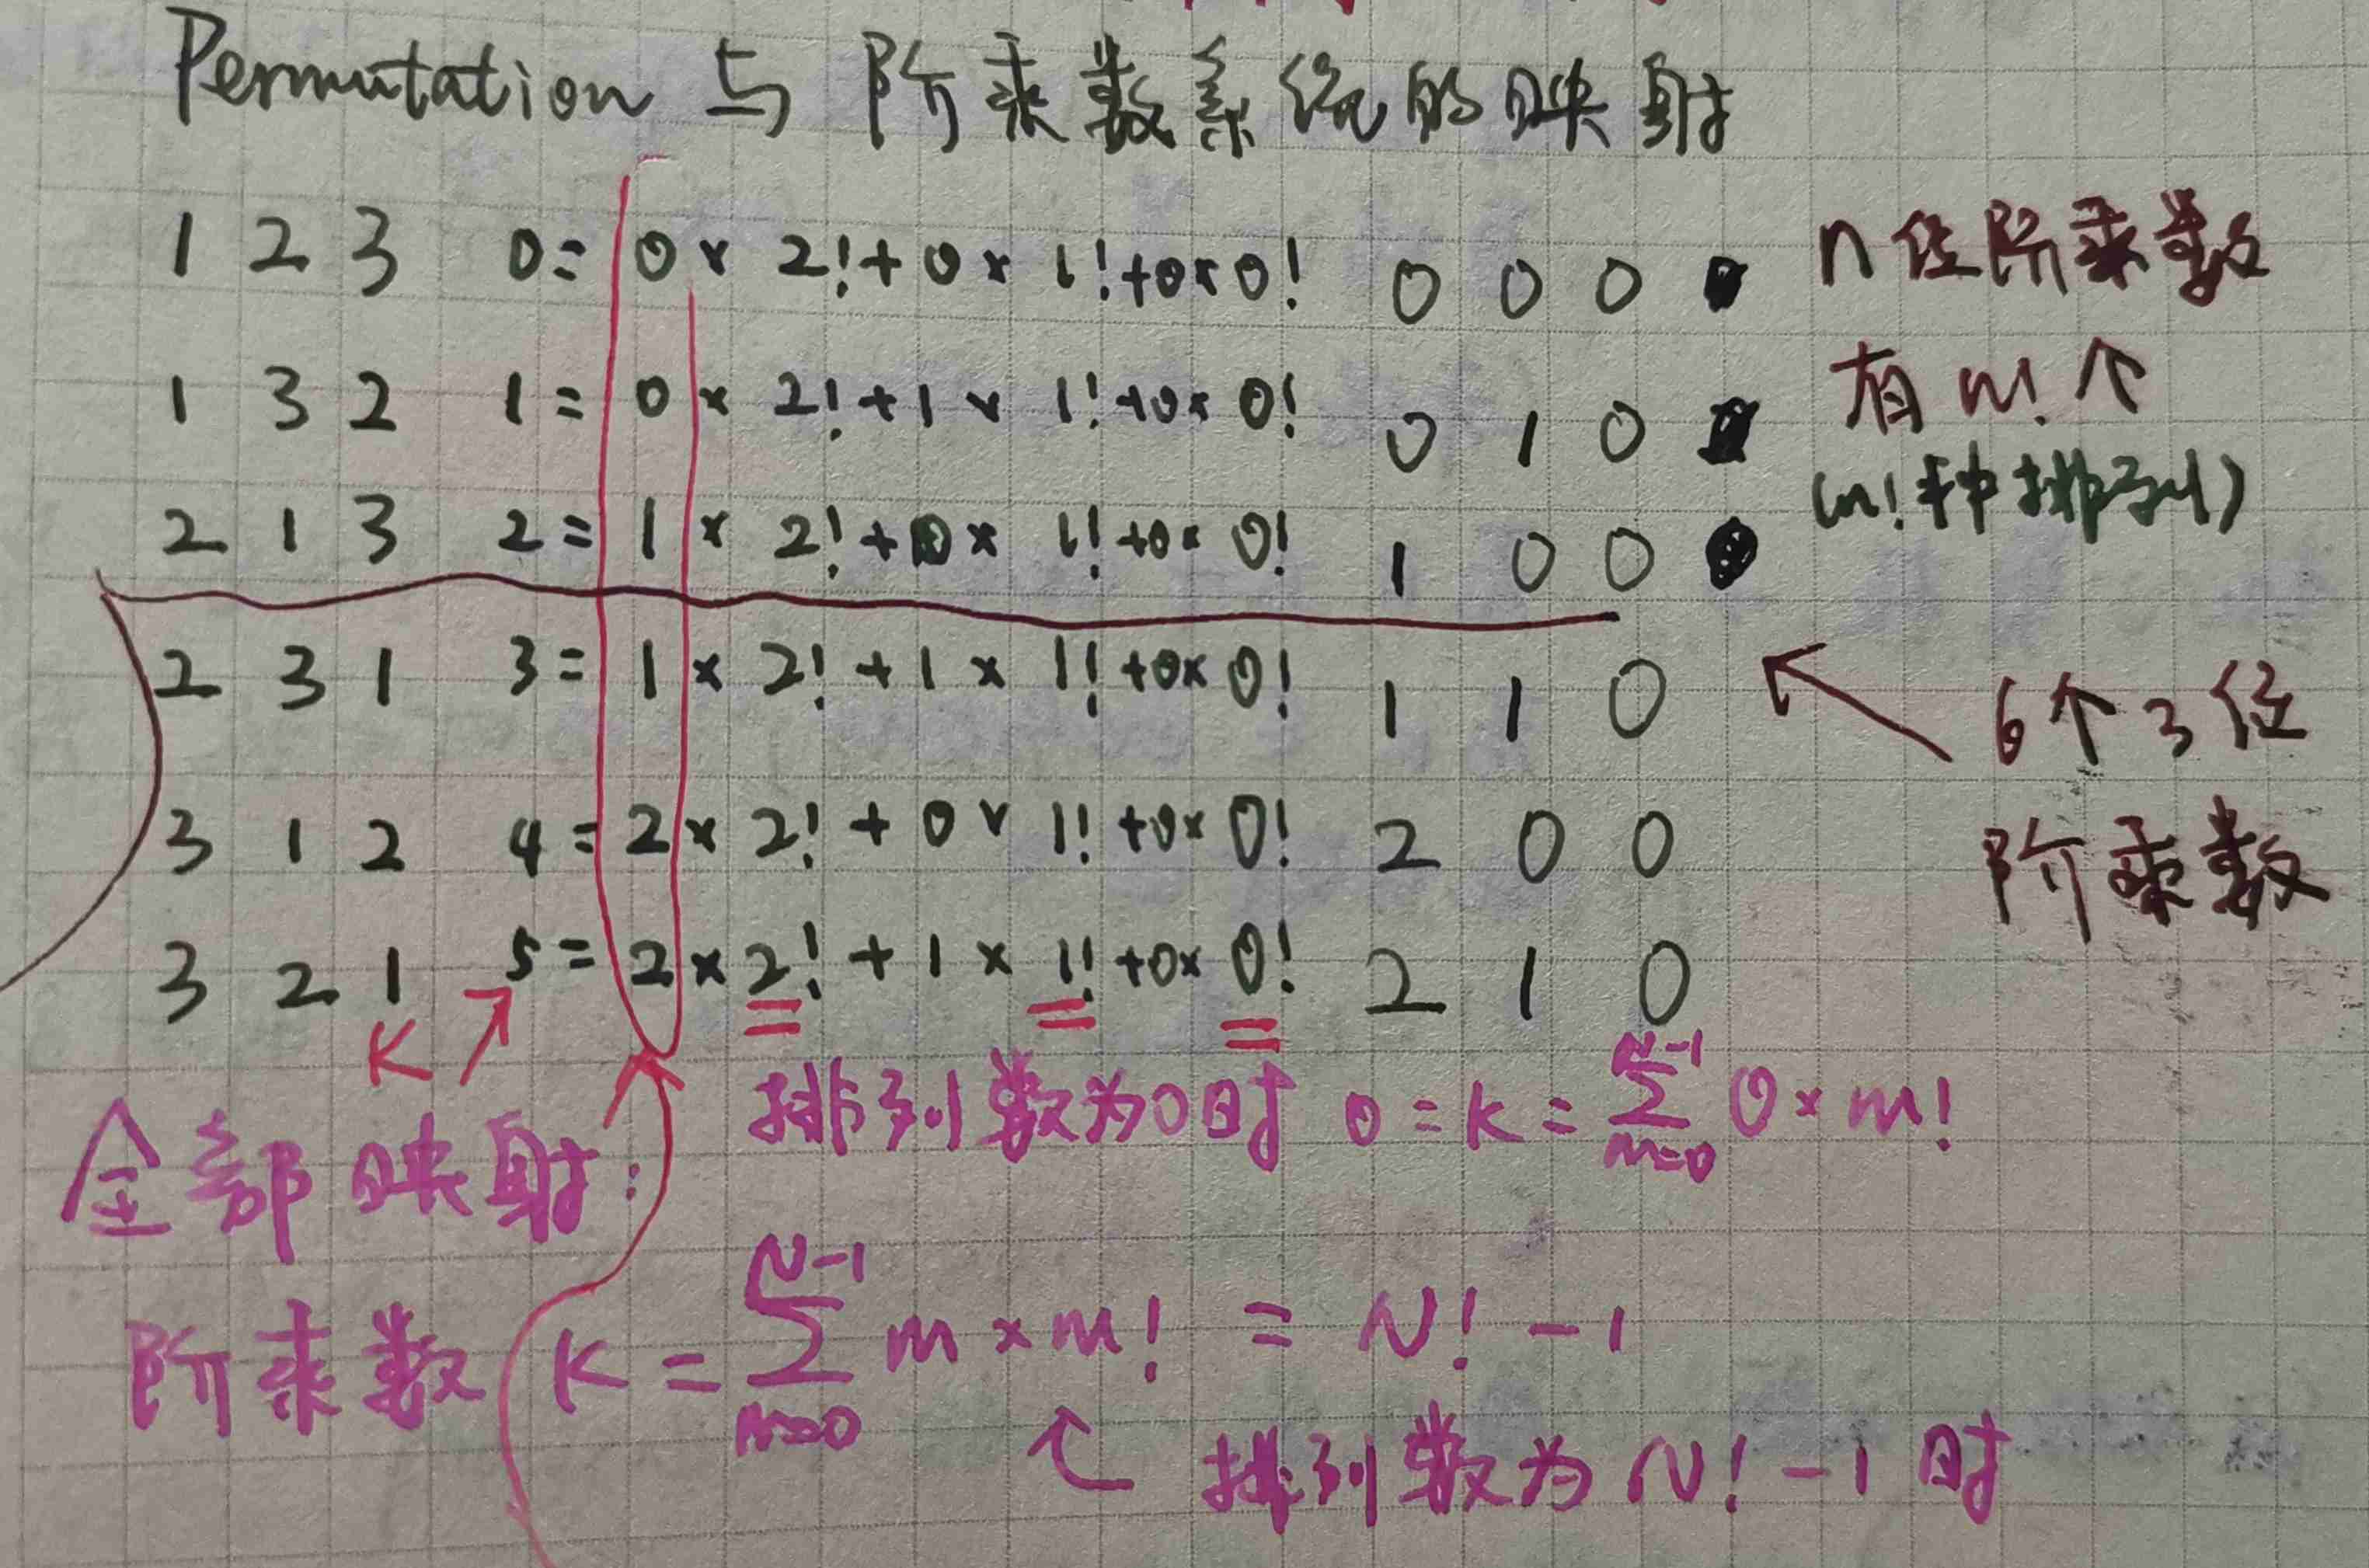 Permutation 与 阶乘数系统的映射
1 2 3 0 = 0 × 2! + 0 × 1! + 0 × 0! 0 0 0
n 位阶乘数
1 3 2 1 = 0 × 2! + 1 × 1! + 0 × 0! 0 1 0
有 n! 个
(n! 种排列)
2 1 3 2 = 1 × 2! + 0 × 1! + 0 × 0! 1 0 0
2 3 1 3 = 1 × 2! + 1 × 1! + 0 × 0! 1 1 0
6个3位
阶乘数
3 1 2 4 = 2 × 2! + 0 × 1! + 0 × 0! 2 0 0
3 2 1 5 = 2 × 2! + 1 × 1! + 0 × 0! 2 1 0
K
排列数为0时 0 = K = \sum_{m=0}^{N-1} 0 × m!
全部映射:
阶乘数 K = \sum_{m=0}^{N-1} m × m! = N! - 1
排列数为 N! - 1 时